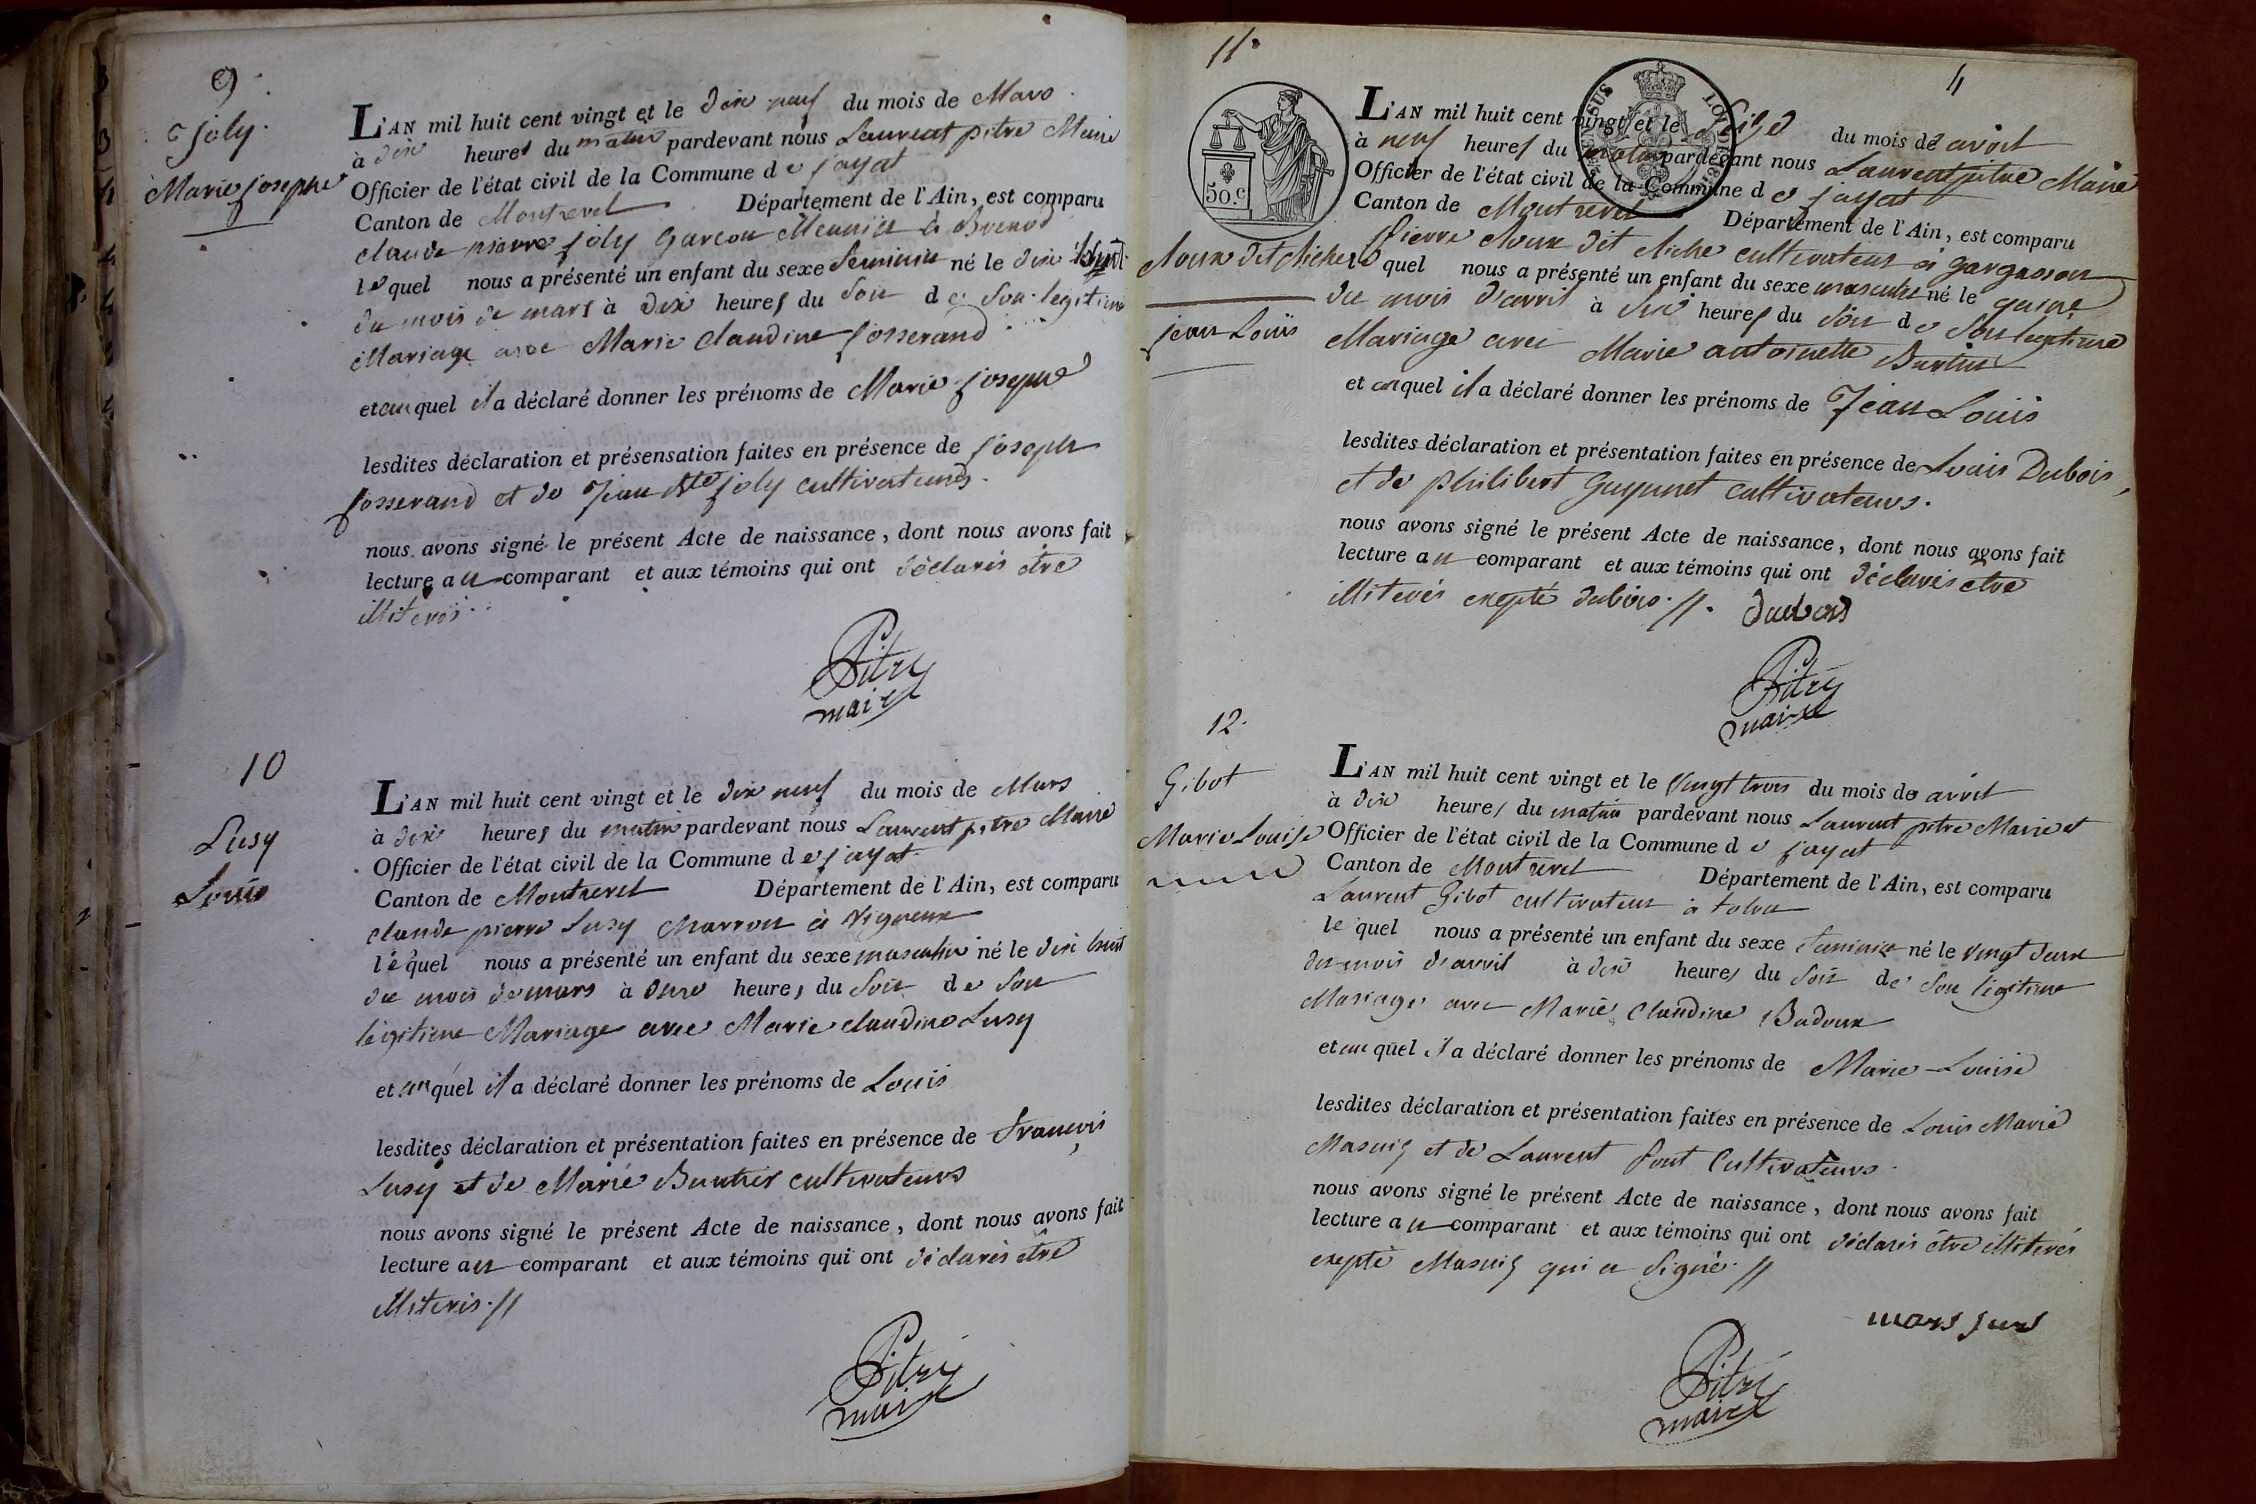 9
joly
Marie josephe
L'AN mil huit cent vingt et le dix neuf du mois de Mars
à dix heures du matin pardevant nous Laurent pitre Maire
Officier de l'état civil de la Commune de jayat
Canton de Montrevel Département de l'Ain, est comparu
claude pierre joly garcon Meunier à
lequel nous a présenté un enfant du sexe feminin né le dix huit
du mois de mars à dix heures du soir de son legitime
Mariage avec Marie Claudine josserand
et auquel il a déclaré donner les prénoms de Marie josephe
lesdites déclaration et présensation faites en présence de joseph
josserand et de jean Bte joly cultivateurs.
nous avons signé le présent Acte de naissance, dont nous avons fait
lecture au comparant et aux témoins qui ont déclarés être
illiterés
Pitre
maire
10
Lusy
Louis
L'AN mil huit cent vingt et le dix neuf du mois de Mars
à dix heures du matin pardevant nous Laurent pitre Maire
Officier de l'état civil de la Commune de jayat
Canton de Montrevel Département de l'Ain, est comparu
claude pierre Lusy charron à vigneux
lequel nous a présenté un enfant du sexe masculin né le dix huit
du mois de mars à heures du soir de son
legitime Mariage avec Marie claudine Lusy
et auquel il a déclaré donner les prénoms de Louis
lesdites déclaration et présentation faites en présence de francois
Lusy et de Marie cultivateurs
nous avons signé le présent Acte de naissance, dont nous avons fait
lecture au comparant et aux témoins qui ont déclarés être
illiterés.//
Pitre
maire
11.
4
50.c
Noux dit Niche
jean Louis
L'AN mil huit cent vingt et le seize du mois de avril
à neuf heures du matin pardevant nous Laurent pitre Maire
Officier de l'état civil de la Commune de jayat
Canton de Montrevel Département de l'Ain, est comparu
pierre Noux dit Niche cultivateur à gargasson
lequel nous a présenté un enfant du sexe masculin né le quinze
du mois d'avril à six heures du soir de son legitime
Mariage avec Marie antoinette Burtin
et auquel il a déclaré donner les prénoms de Jean Louis
lesdites déclaration et présentation faites en présence de Louis Dubois,
et de philibert Guyennet cultivateurs.
nous avons signé le présent Acte de naissance, dont nous avons fait
lecture au comparant et aux témoins qui ont déclarés etre
illiterés exepté dubois.//. dubois
Pitre
maire
12.
Gibot
Marie Louise
L'AN mil huit cent vingt et le vingt trois du mois de avril
à dix heures du matin pardevant nous Laurent pitre Maire et
Officier de l'état civil de la Commune de jayat
Canton de Montrevel Département de l'Ain, est comparu
Laurent Gibot cultivateur à
lequel nous a présenté un enfant du sexe feminin né le vingt deux
du mois d'avril à dix heures du soir de son légitime
Mariage avec Marie Claudine Badoux
et auquel il a déclaré donner les prénoms de Marie Louise
lesdites déclaration et présentation faites en présence de Louis Marie
Masuis et de Laurent Pont Cultivateurs.
nous avons signé le présent Acte de naissance, dont nous avons fait
lecture au comparant et aux témoins qui ont déclarés être illiterés
exepté Masuis qui a signé.//
Pitre
maire